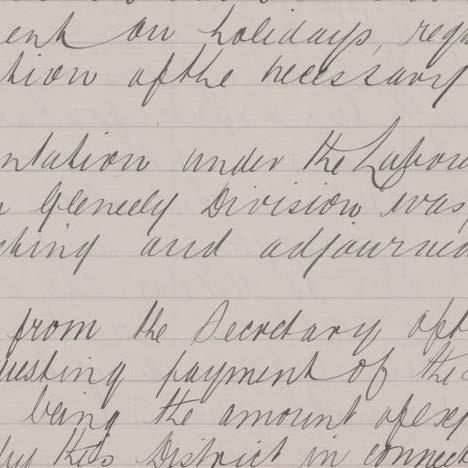 ent on holidays, rega
tion of the necessary
ntation under the Labou
n Glenely Division was
ching and adjourned
from the Secretary of t
uesting payment of the
being the amount of exp
by this District in connect